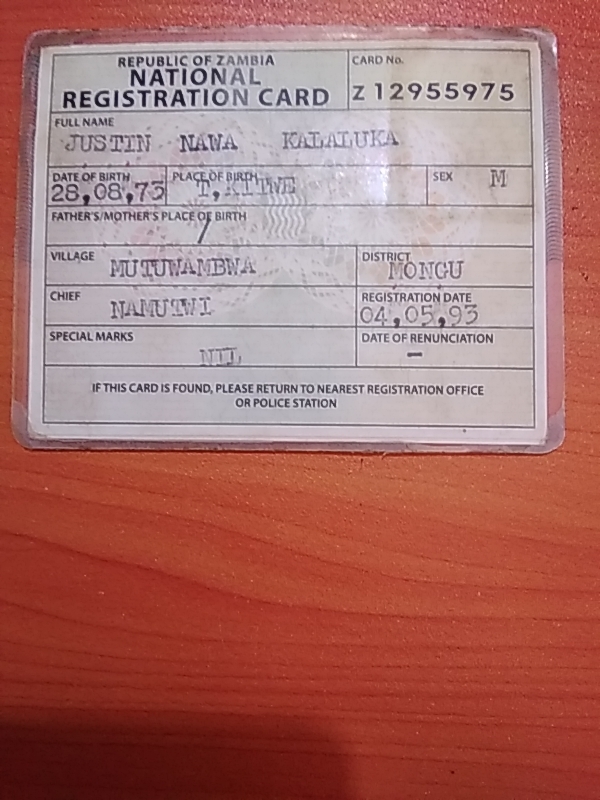 REPUBLIC OF ZAMBIA
NATIONAL
REGISTRATION CARD
CARD No.
Z 12955975
FULL NAME
JUSTIN NAWA KALALUKA
DATE OF BIRTH
28,08,73
PLACE OF BIRTH
T,KITWE
SEX M
FATHER'S/MOTHER'S PLACE OF BIRTH
/
VILLAGE
MUTUWAMBWA
DISTRICT
MONGU
CHIEF
NAMUTWI
REGISTRATION DATE
04,05,93
SPECIAL MARKS
NIL
DATE OF RENUNCIATION
–
IF THIS CARD IS FOUND, PLEASE RETURN TO NEAREST REGISTRATION OFFICE
OR POLICE STATION